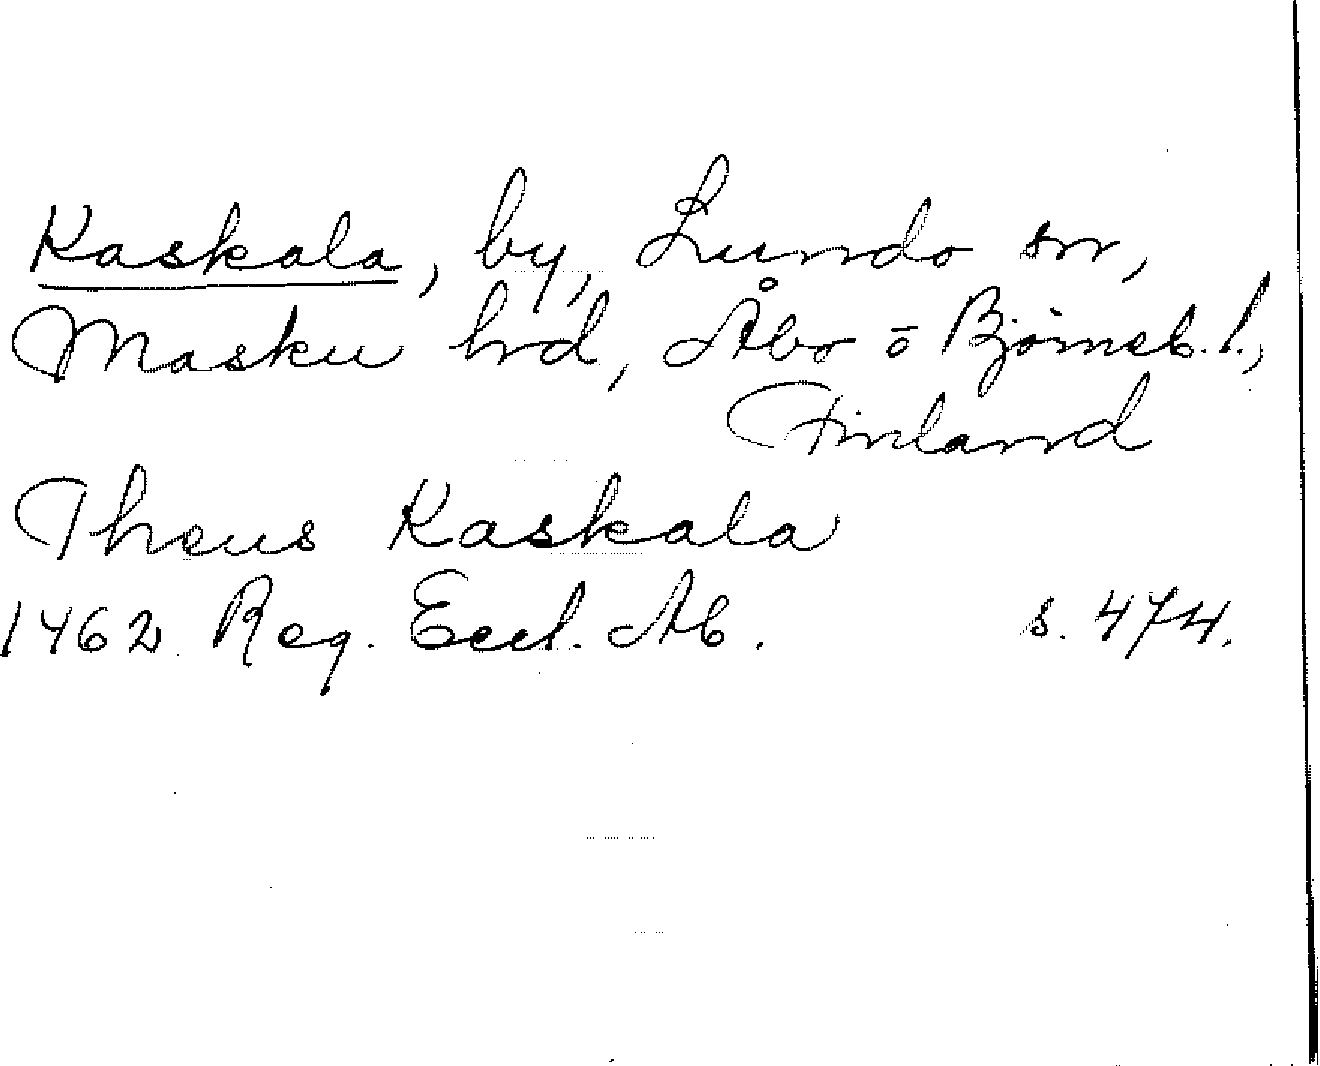 Kaskala, by, Lundo sn,
Masku hrd, Åbo o Björneb. l.,
Finland
Theus Kaskala
1462 Reg. Eccl. Ab. s. 474.